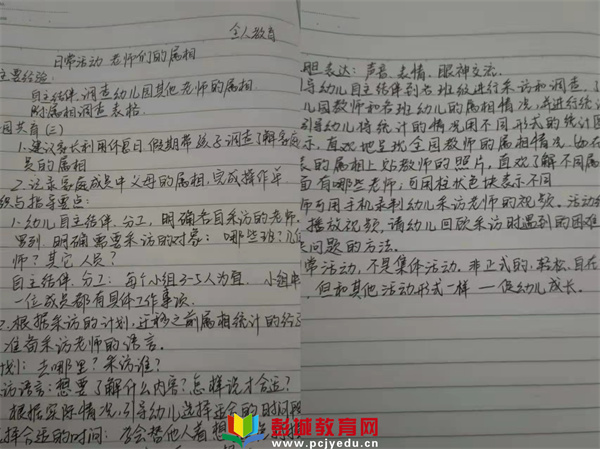 全人教育
日常活动 老师们的属相
主要经验:
自主结伴、调查幼儿园其他老师的属相
附属相调查表格.
园共育(三)
1.建议家长利用休息日、假期带孩子调查了解家庭
员的属相
2.记录家庭成员中父母的属相,完成操作单
织与指导要点:
1.幼儿自主结伴、分工,明确各自采访的老师.
罗列、明确需要采访的对象: 哪些班?几位
师?其它人员?
自主结伴、分工:每个小组3-5人为宜. 小组中
一位成员都有具体工作事项.
2.根据采访的计划,迁移之前属相统计的经验
准备采访老师的语言.
划:去哪里?采访谁?
访语言:想要了解什么内容?怎样说才合适?
根据实际情况,引导幼儿选择适合的时间段
择合适的时间: 学会替他人着想
胆表达:声音、表情、眼神交流.
导幼儿自主结伴到各班级进行采访和调查.了
儿园教师和各班幼儿的属相情况,并进行统计
引导幼儿将统计的情况用不同形式的统计图
示,直观地呈现全园教师的属相情况.如在
表的属相上贴教师的照片,直观了解不同属
面有哪些老师;可用柱状色块表示不同
师可用手机录制幼儿采访老师的视频.活动结
播放视频,请幼儿回顾采访时遇到的困难
决问题的方法.
常活动,不是集体活动.非正式的,轻松、自在
但和其他活动形式一样——促幼儿成长.
彭城教育网
www.pcjyedu.cn